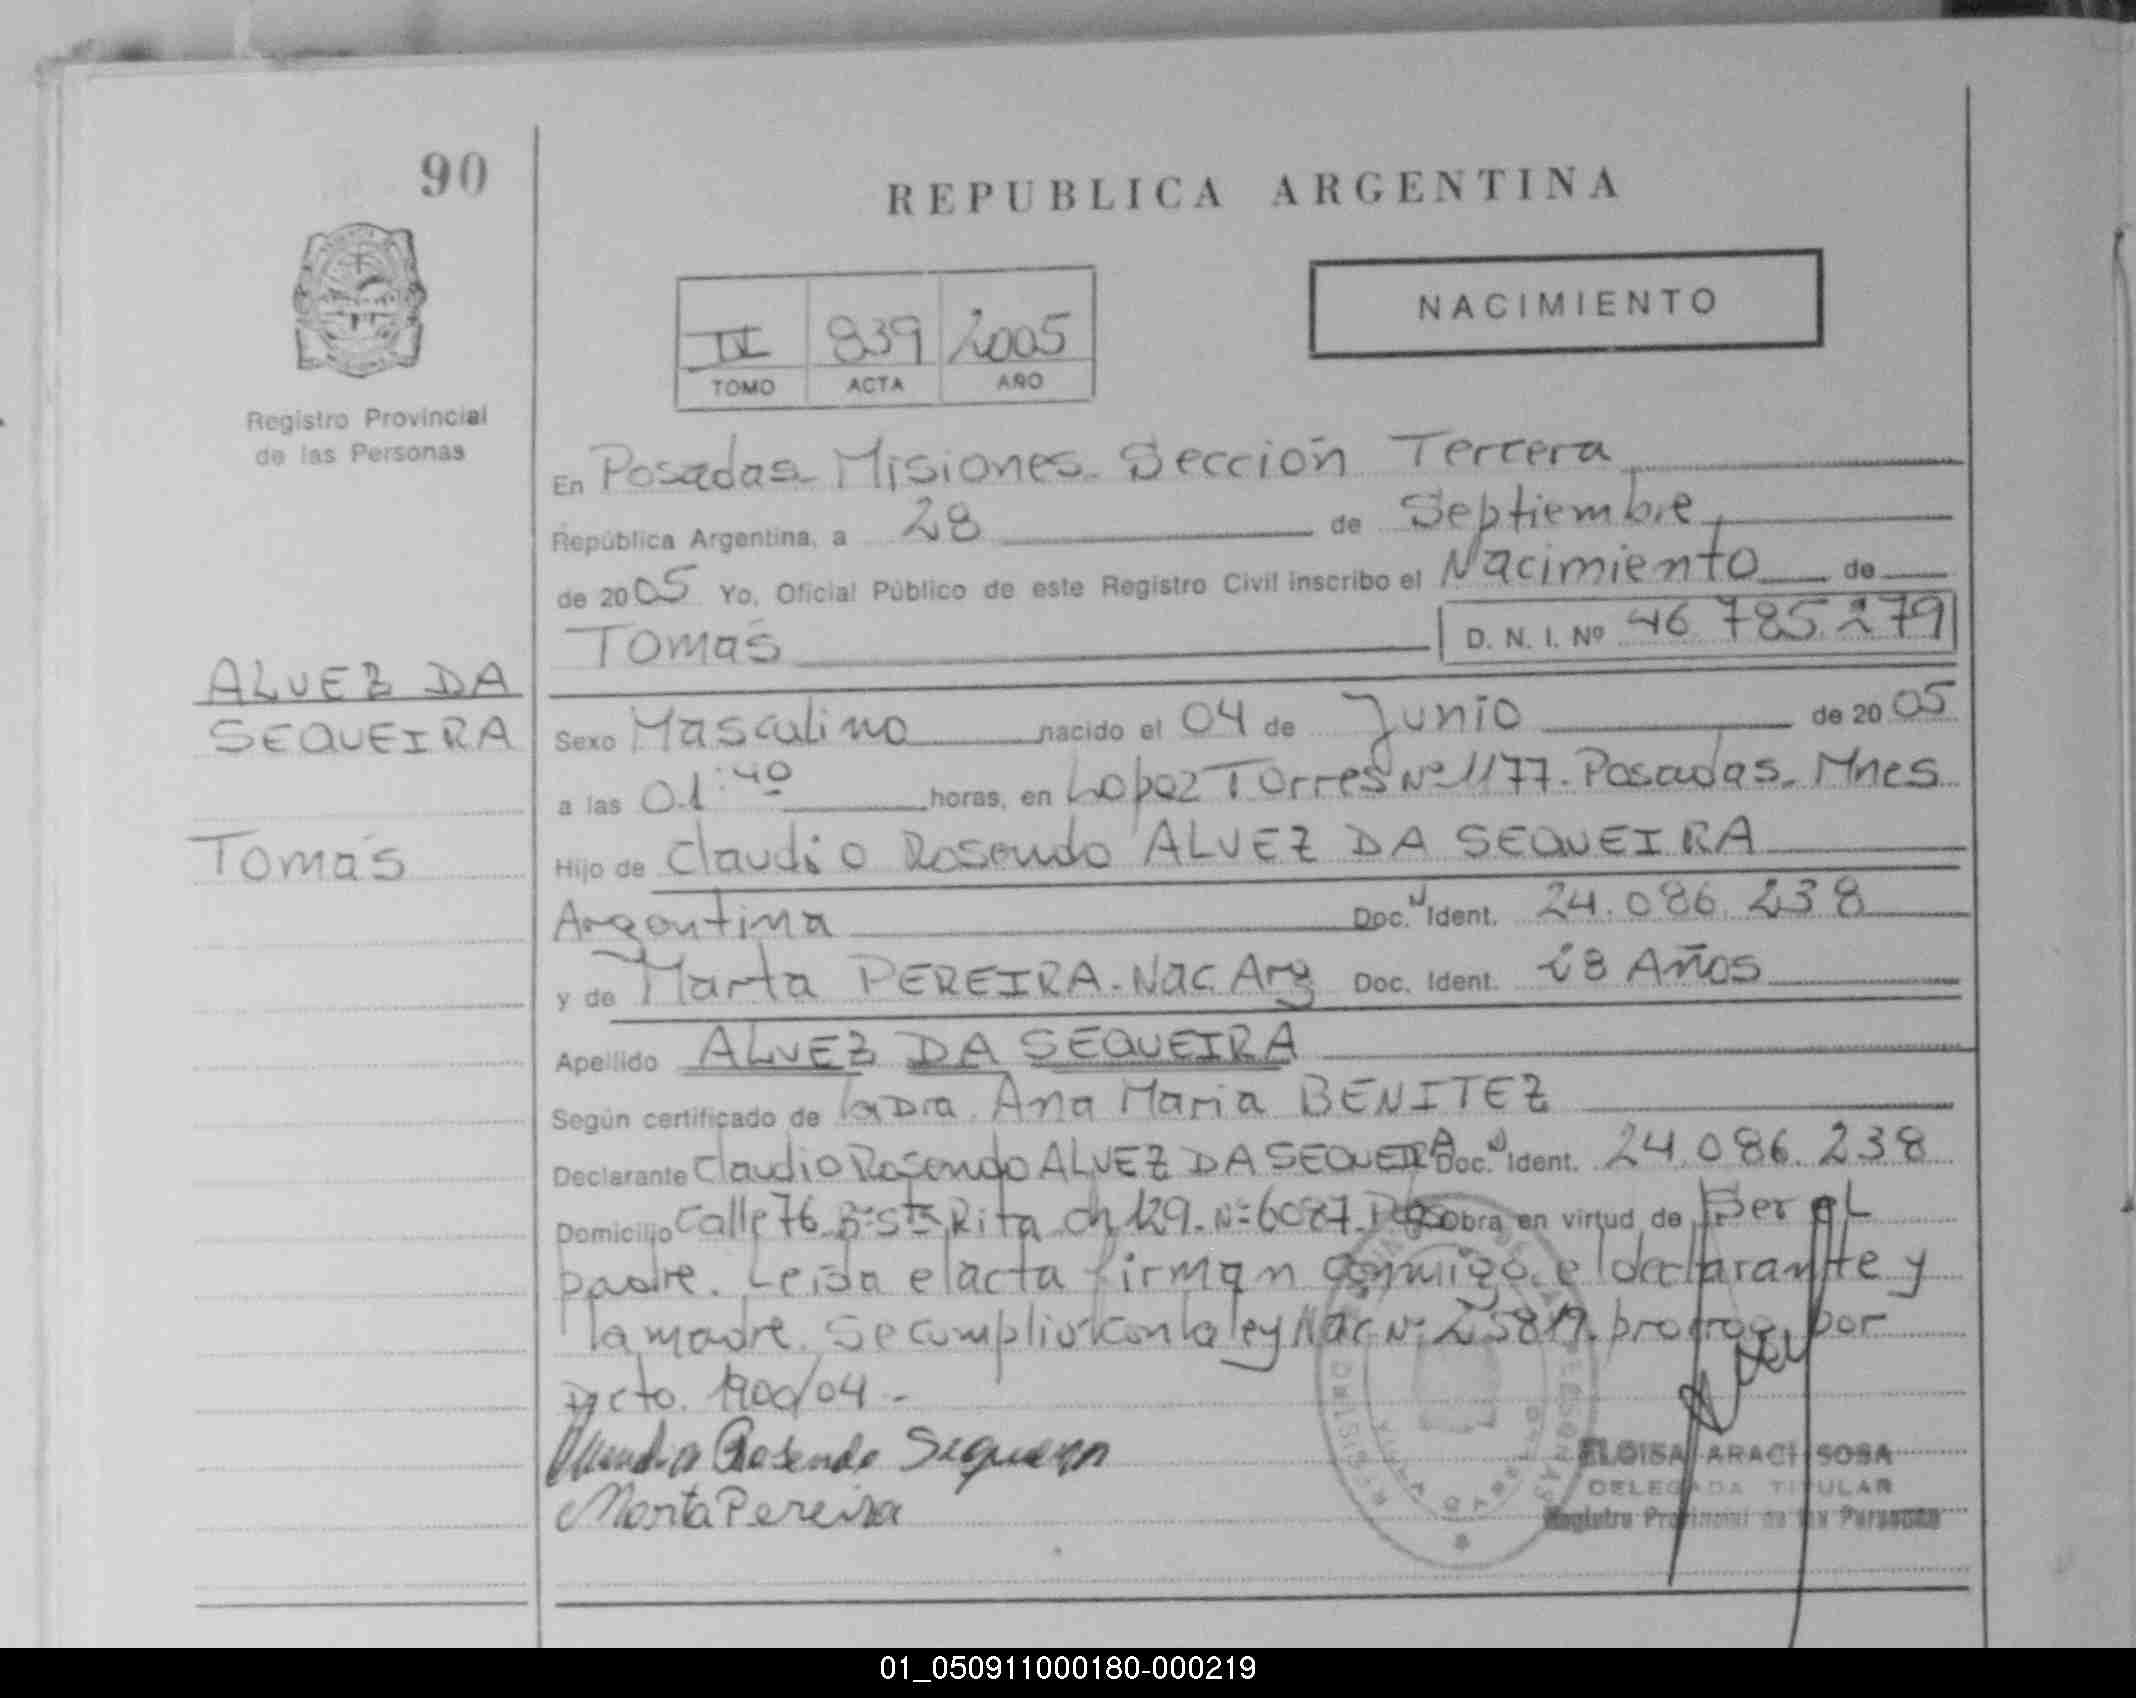 90
REPUBLICA ARGENTINA
NACIMIENTO
II 839 2005
TOMO ACTA AÑO
Registro Provincial
de las Personas
En Posadas- Misiones- Sección Tercera
República Argentina, a 28 de Septiembre
de 2005 Yo, Oficial Público de este Registro Civil inscribo el Nacimiento de
Tomás D. N. I. Nº 46.785.279
ALVEZ DA
SEQUEIRA
Tomás
Sexo Masculino nacido el 04 de Junio de 2005
a las 01:40 horas, en Lopez Torres Nº 1177. Posadas- Mnes
Hijo de Claudio Rosendo ALVEZ DA SEQUEIRA
Argentina Doc. Ident. 24.086.238
y de Marta PEREIRA. Nac. Arg Doc. Ident. 28 Años
Apellido ALVEZ DA SEQUEIRA
Según certificado de la Dra. Ana Maria BENITEZ
Declarante Claudio Rosendo ALVEZ DA SEQUEIRA Doc. Ident. 24.086.238
Domicilio Calle 76 Bº Sta Rita ch 129. Nº 6087. Pdas Obra en virtud de Ser el
padre. Leida el acta firman conmigo el declarante y
la madre. Se cumplió con la ley Nac Nº 25819. prorrog. por
Dcto. 1900/04.-
Claudio Rosendo Sequeira
Marta Pereira
ELOISA ARACI SOSA
DELEGADA TITULAR
Registro Provincial de las Personas
01_050911000180-000219